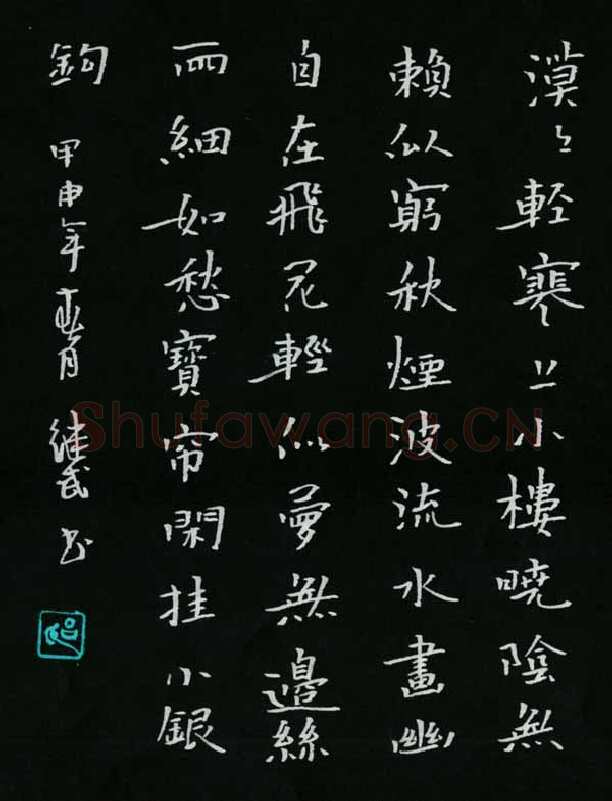 漠々輕寒上小樓曉陰無
賴似窮秋煙波流水畫幽
自在飛花輕似夢無邊絲
雨細如愁寶帘閑挂小銀
鈎 甲申年 武书
Shufawang.CN